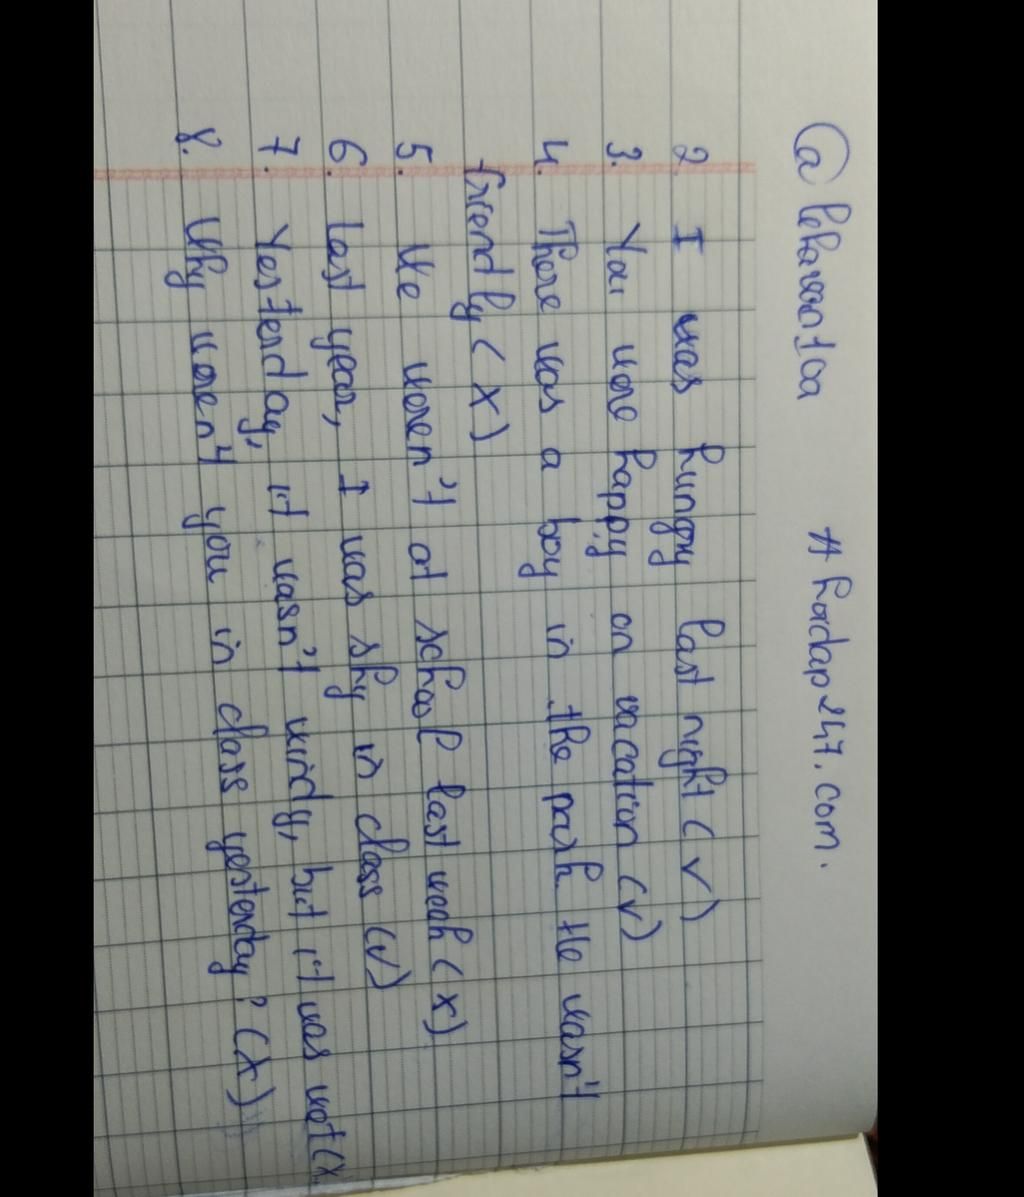 @lehavantoa # hoidap247.com.
2. I was hungry last night (v)
3. You were happy on vacation (v)
4. There was a boy in the park. He wasn't
friendly (x)
5. We weren't at school last weak (x)
6. last year, I was shy in class (v)
7. Yesterday, it wasn't windy, but it was wet (x
8. Why weren't you in class yesterday? (x)